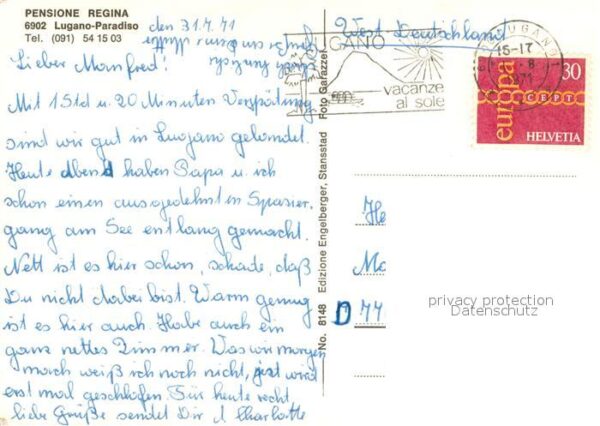 PENSIONE REGINA
6902 Lugano-Paradiso
Tel. (091) 54 15 03
den 31.7.71
Lieber Manfred!
Mit 1 Std u. 20 Minuten Verspätung
sind wir gut in Lugano gelandet.
Heute Abend haben Papa u. ich
schon einen ausgedehnten Spazier-
gang am See entlang gemacht.
Nett ist es hier schon, schade, daß
Du nicht dabei bist. Warm genug
ist es hier auch. Habe auch ein
ganz nettes Zimmer. Was wir morgen
mach weiß ich noch nicht, jest wird
erst mal geschlafen. Für heute recht
liebe Grüße sendet Dir
Charlotte
No. 8148 Edizione Engelberger, Stansstad Foto Garazzei
West Deutschland
LUGANO
vacanze
al sole
LUGANO
15-17
-8
1971
europa
30
CEPT
HELVETIA
He
Ma
D 77
privacy protection
Datenschutz